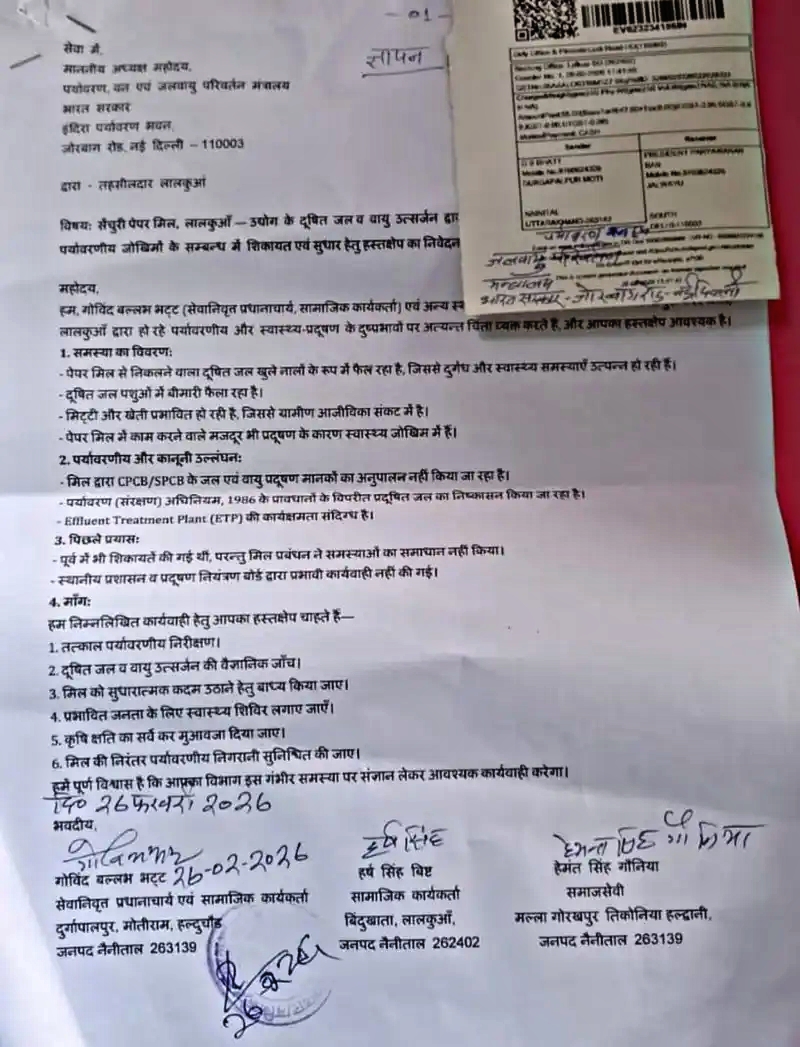 - 01 -
ज्ञापन
सेवा में,
माननीय अध्यक्ष महोदय,
पर्यावरण, वन एवं जलवायु परिवर्तन मंत्रालय
भारत सरकार
इंदिरा पर्यावरण भवन,
जोरबाग रोड, नई दिल्ली – 110003
द्वारा - तहसीलदार लालकुआं
विषय: सेंचुरी पेपर मिल, लालकुआँ — उद्योग के दूषित जल व वायु उत्सर्जन द्वा
पर्यावरणीय जोखिमों के सम्बन्ध में शिकायत एवं सुधार हेतु हस्तक्षेप का निवेदन
महोदय,
हम, गोविंद बल्लभ भट्ट (सेवानिवृत्त प्रधानाचार्य, सामाजिक कार्यकर्ता) एवं अन्य
लालकुआँ द्वारा हो रहे पर्यावरणीय और स्वास्थ्य-प्रदूषण के दुष्प्रभावों पर अत्यन्त चिंता व्यक्त करते है, और आपका हस्तक्षेप आवश्यक है।
1. समस्या का विवरण:
- पेपर मिल से निकलने वाला दूषित जल खुले नालों के रूप में फैल रहा है, जिससे दुर्गंध और स्वास्थ्य समस्याएँ उत्पन्न हो रही हैं।
- दूषित जल पशुओं में बीमारी फैला रहा है।
- मिट्टी और खेती प्रभावित हो रही है, जिससे ग्रामीण आजीविका संकट में है।
- पेपर मिल में काम करने वाले मजदूर भी प्रदूषण के कारण स्वास्थ्य जोखिम में हैं।
2. पर्यावरणीय और कानूनी उल्लंघन:
- मिल द्वारा CPCB/SPCB के जल एवं वायु प्रदूषण मानकों का अनुपालन नहीं किया जा रहा है।
- पर्यावरण (संरक्षण) अधिनियम, 1986 के प्रावधानों के विपरीत प्रदूषित जल का निष्कासन किया जा रहा है।
- Effluent Treatment Plant (ETP) की कार्यक्षमता संदिग्ध है।
3. पिछले प्रयास:
- पूर्व में भी शिकायतें की गई थीं, परन्तु मिल प्रबंधन ने समस्याओं का समाधान नहीं किया।
- स्थानीय प्रशासन व प्रदूषण नियंत्रण बोर्ड द्वारा प्रभावी कार्यवाही नहीं की गई।
4. माँग:
हम निम्नलिखित कार्यवाही हेतु आपका हस्तक्षेप चाहते हैं—
1. तत्काल पर्यावरणीय निरीक्षण।
2. दूषित जल व वायु उत्सर्जन की वैज्ञानिक जाँच।
3. मिल को सुधारात्मक कदम उठाने हेतु बाध्य किया जाए।
4. प्रभावित जनता के लिए स्वास्थ्य शिविर लगाए जाएँ।
5. कृषि क्षति का सर्वे कर मुआवजा दिया जाए।
6. मिल की निरंतर पर्यावरणीय निगरानी सुनिश्चित की जाए।
हमें पूर्ण विश्वास है कि आपका विभाग इस गंभीर समस्या पर संज्ञान लेकर आवश्यक कार्यवाही करेगा।
दि० 26 फरवरी 2026
भवदीय,
26-02-2026
गोविंद बल्लभ भट्ट
सेवानिवृत्त प्रधानाचार्य एवं सामाजिक कार्यकर्ता
दुर्गापालपुर, मोतीराम, हल्दुचौड़
जनपद नैनीताल 263139
हर्ष सिंह
हर्ष सिंह बिष्ट
सामाजिक कार्यकर्ता
बिंदुखाता, लालकुआँ,
जनपद नैनीताल 262402
हेमन्त सिंह गौनिया
हेमंत सिंह गौनिया
समाजसेवी
मल्ला गोरखपुर तिकोनिया हल्द्वानी,
जनपद नैनीताल 263139
Sender
Receiver
G B BHATT
DURGAPALPUR MOTI
NAINITAL
PRESIDENT PARYAVARAN
BAN
JALWAYU
SOUTH
पर्यावरण वन एवं
जलवायु परिवर्तन
मन्त्रालय
भारत सरकार - जोरबाग रोड - नई दिल्ली